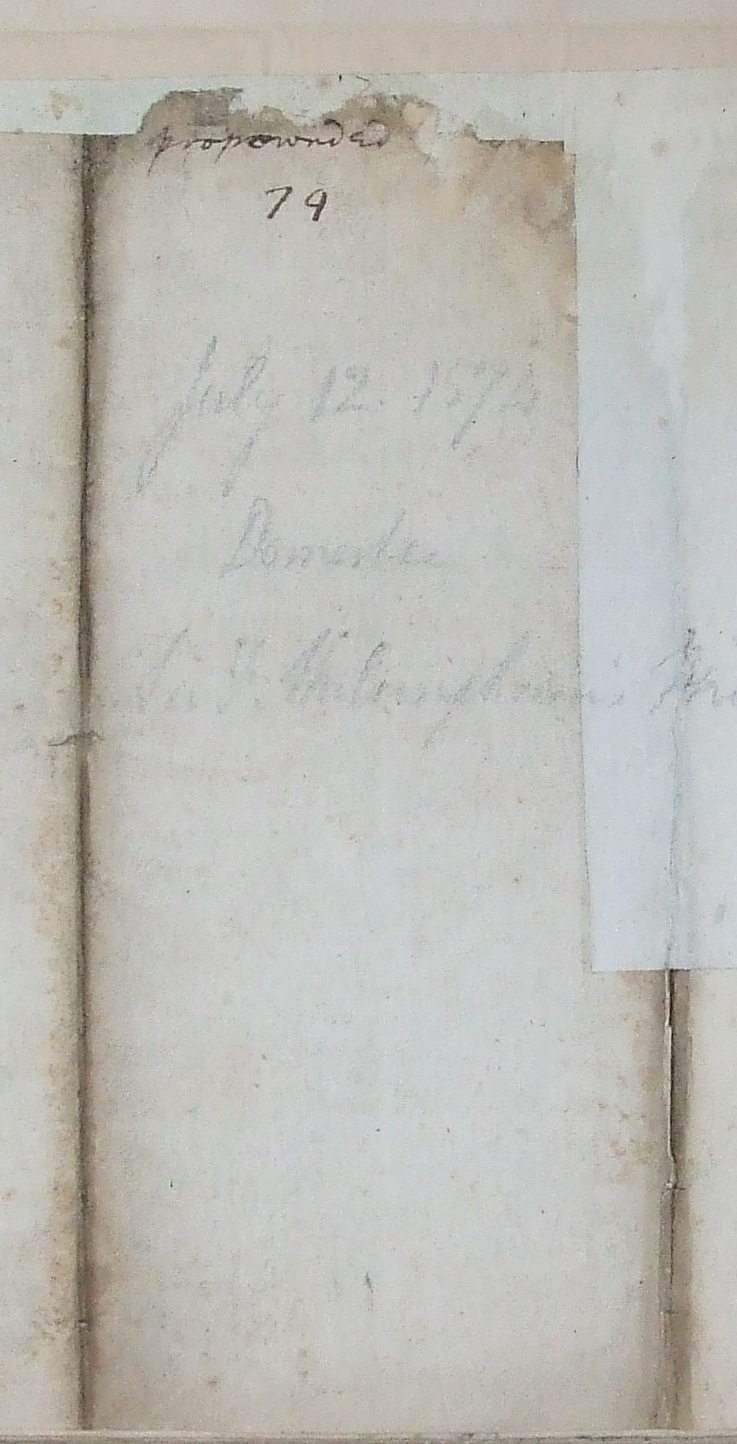 propownded
79
July 12. 1574
Domestic
Sir F. Walsingham's